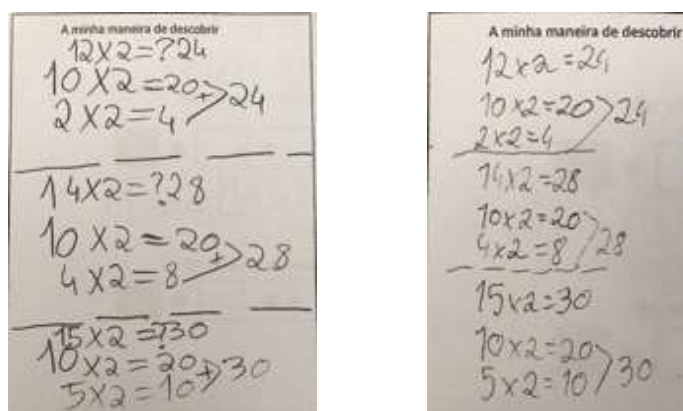 A minha maneira de descobrir
12x2=?24
10x2=20
+ >24
2x2=4
14x2=?28
10x2=20
+ >28
4x2=8
15x2=?30
10x2=20
+ >30
5x2=10
A minha maneira de descobrir
12x2=24
10x2=20
>24
2x2=4
14x2=28
10x2=20
>28
4x2=8
15x2=30
10x2=20
>30
5x2=10